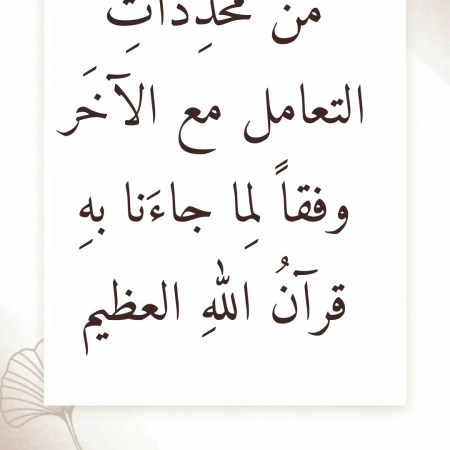 من محدِداتِ
التعامل مع الآخَر
وفقاً لِما جاءَنا بهِ
قرآنُ اللهِ العظيم